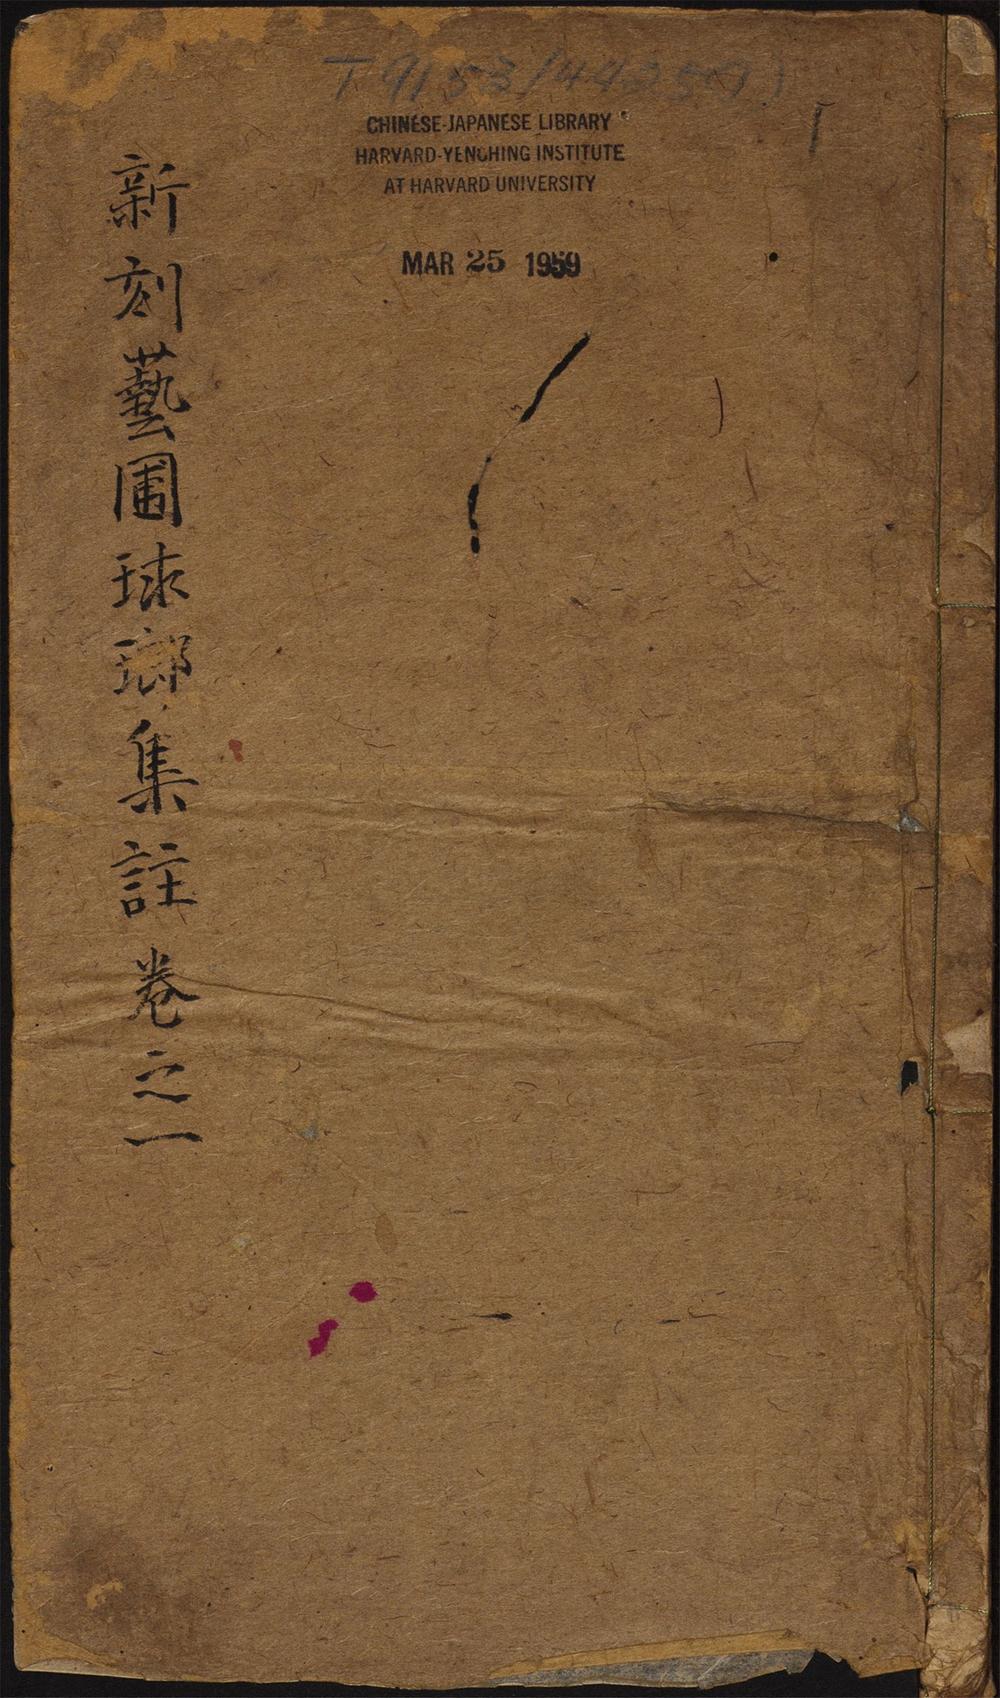 T 9153/4425(1)
CHINESE-JAPANESE LIBRARY
HARVARD-YENCHING INSTITUTE
AT HARVARD UNIVERSITY
MAR 25 1959
新刻藝圃球瑯集註卷之一